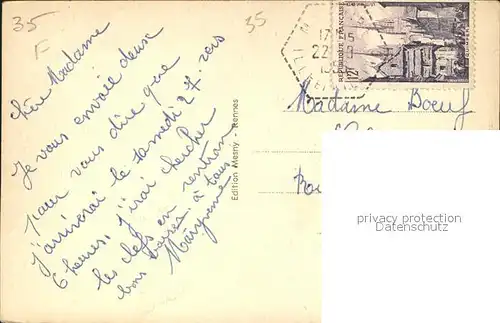 35
F
35
Chère Madame
Je vous envoie deux
pour vous dire que
j'arriverai le samedi 27. vers
6 heures. J'irai chercher
les clefs en rentrant
bons baisers à tous
Maryvonne
Edition Mesny - Rennes
17 15
22
REPUBLIQUE FRANÇAISE
12F
Madame Boeuf
privacy protection
Datenschutz